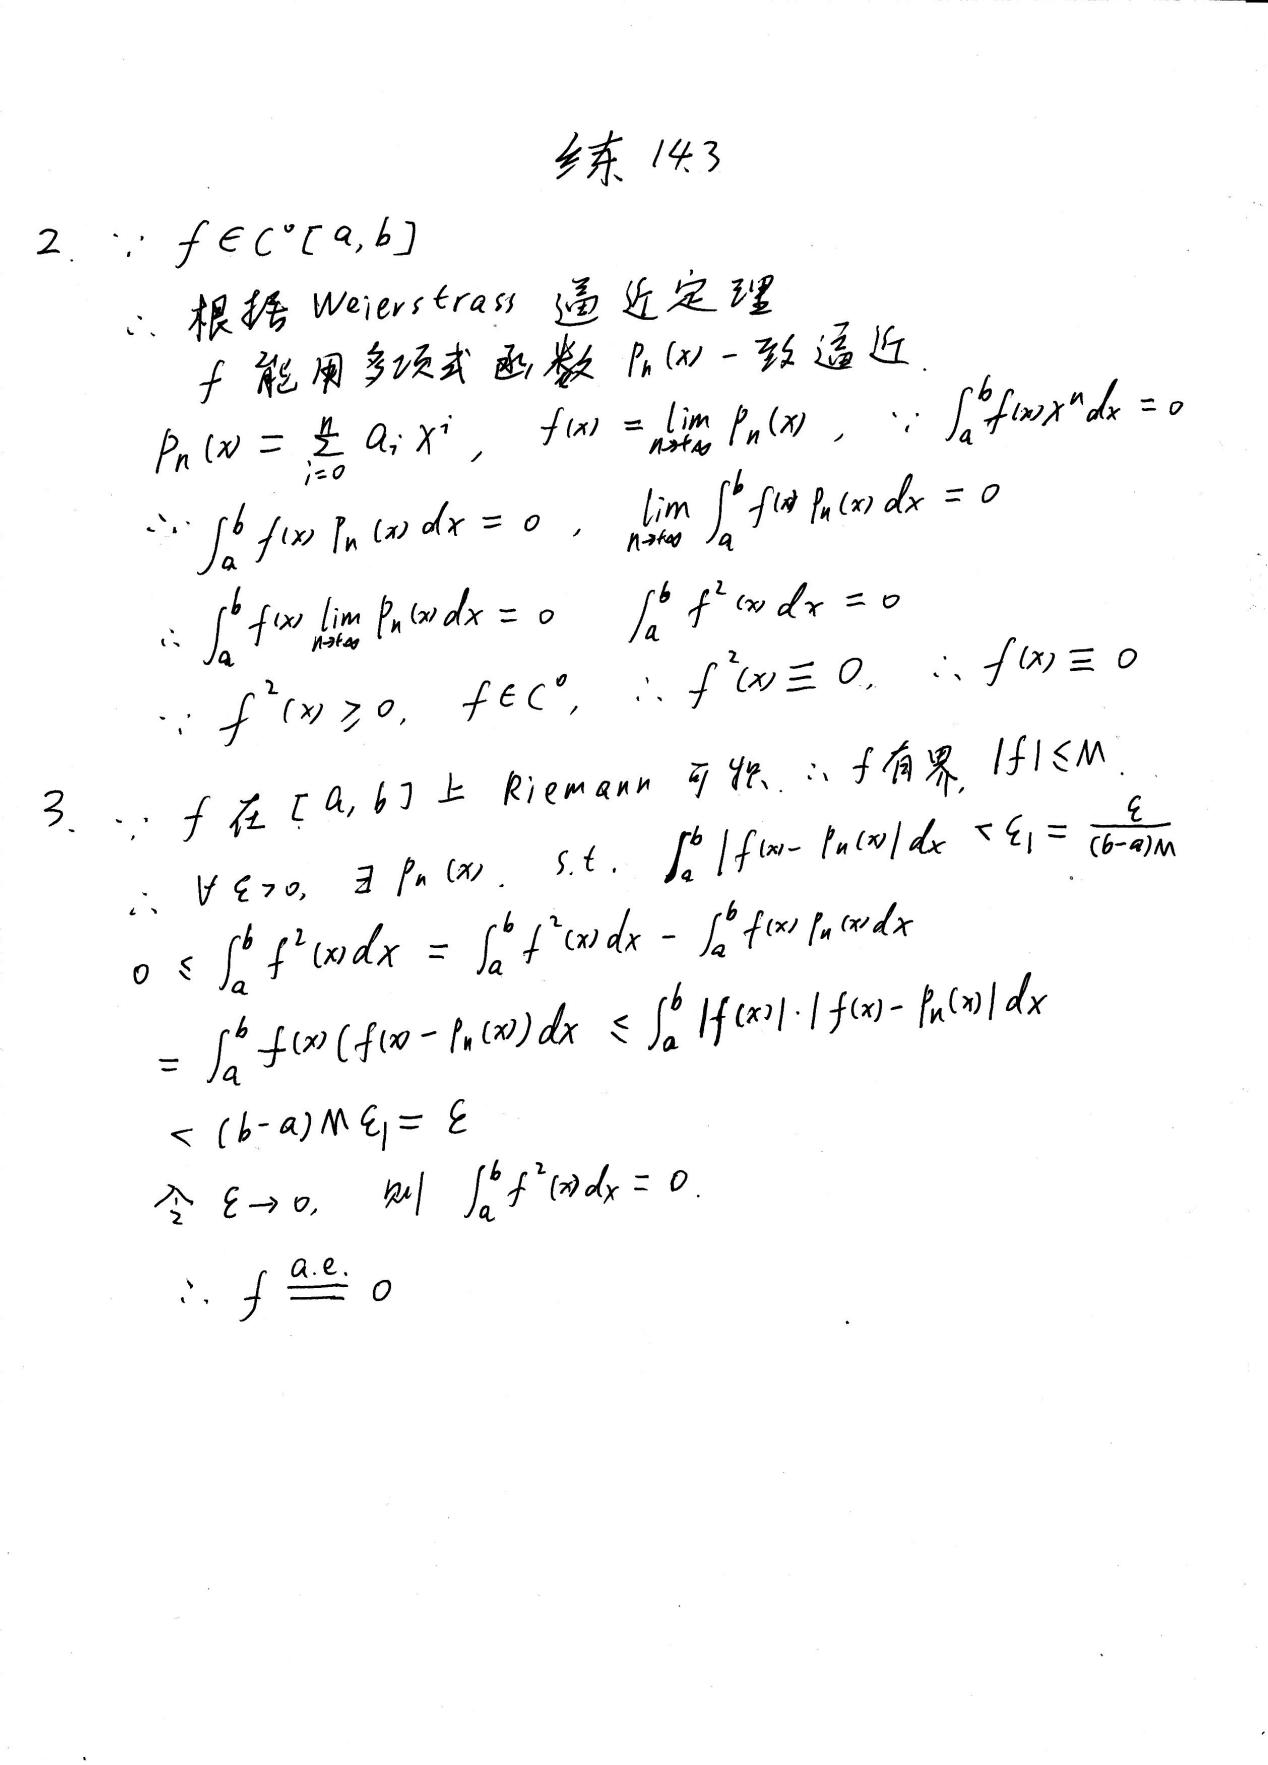 练 14.3
2. ∵ f∈C⁰[a,b]
∴ 根据 Weierstrass 逼近定理
f 能用多项式函数 Pₙ(x) 一致逼近.
Pₙ(x) = ∑_{i=0}^{n} aᵢxⁱ, f(x) = lim_{n→+∞} Pₙ(x), ∵ ∫_a^b f(x)xⁿdx = 0
∴ ∫_a^b f(x)Pₙ(x)dx = 0, lim_{n→+∞} ∫_a^b f(x)Pₙ(x)dx = 0
∴ ∫_a^b f(x) lim_{n→+∞} Pₙ(x)dx = 0 ∫_a^b f²(x)dx = 0
∵ f²(x) ≥ 0, f∈C⁰, ∴ f²(x) ≡ 0, ∴ f(x) ≡ 0
3. ∵ f 在 [a,b] 上 Riemann 可积. ∴ f 有界, |f| ≤ M.
∴ ∀ε>0, ∃ Pₙ(x). s.t. ∫_a^b |f(x) - Pₙ(x)|dx < ε₁ = ε/((b-a)M)
0 ≤ ∫_a^b f²(x)dx = ∫_a^b f²(x)dx - ∫_a^b f(x)Pₙ(x)dx
= ∫_a^b f(x)(f(x) - Pₙ(x))dx ≤ ∫_a^b |f(x)|·|f(x) - Pₙ(x)|dx
< (b-a)Mε₁ = ε
令 ε→0, 则 ∫_a^b f²(x)dx = 0.
∴ f \overset{a.e.}{=} 0